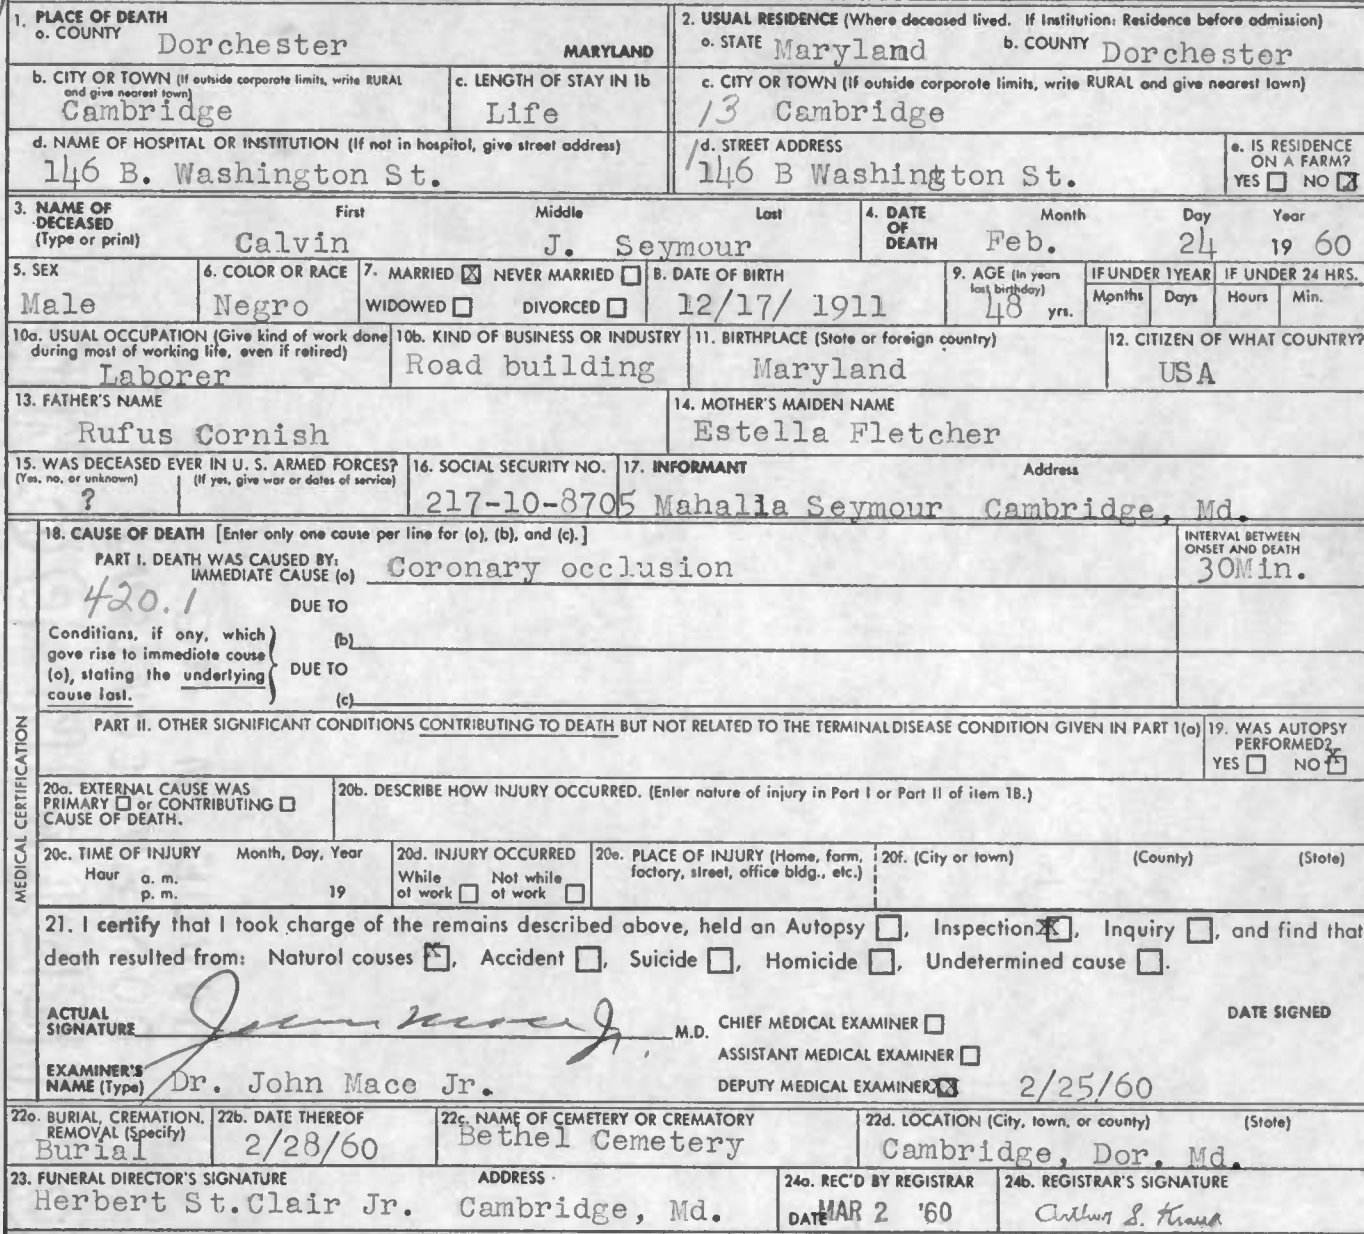 1. PLACE OF DEATH
a. COUNTY Dorchester MARYLAND
2. USUAL RESIDENCE (Where deceased lived. If Institution: Residence before admission)
a. STATE Maryland b. COUNTY Dorchester
b. CITY OR TOWN (If outside corporate limits, write RURAL and give nearest town)
Cambridge
c. LENGTH OF STAY IN 1b
Life
c. CITY OR TOWN (If outside corporate limits, write RURAL and give nearest town)
13 Cambridge
d. NAME OF HOSPITAL OR INSTITUTION (If not in hospital, give street address)
146 B. Washington St.
d. STREET ADDRESS
146 B Washington St.
e. IS RESIDENCE ON A FARM?
YES NO X
3. NAME OF DECEASED (Type or print)
First Middle Last
Calvin J. Seymour
4. DATE OF DEATH
Month Day Year
Feb. 24 19 60
5. SEX
Male
6. COLOR OR RACE
Negro
7. MARRIED X NEVER MARRIED
WIDOWED DIVORCED
8. DATE OF BIRTH
12/17/ 1911
9. AGE (In years last birthday)
48 yrs.
IF UNDER 1 YEAR
Months Days
IF UNDER 24 HRS.
Hours Min.
10a. USUAL OCCUPATION (Give kind of work done during most of working life, even if retired)
Laborer
10b. KIND OF BUSINESS OR INDUSTRY
Road building
11. BIRTHPLACE (State or foreign country)
Maryland
12. CITIZEN OF WHAT COUNTRY?
USA
13. FATHER'S NAME
Rufus Cornish
14. MOTHER'S MAIDEN NAME
Estella Fletcher
15. WAS DECEASED EVER IN U. S. ARMED FORCES?
(Yes, no, or unknown) (If yes, give war or dates of service)
?
16. SOCIAL SECURITY NO.
217-10-8705
17. INFORMANT Address
Mahalla Seymour Cambridge, Md.
MEDICAL CERTIFICATION
18. CAUSE OF DEATH [Enter only one cause per line for (a), (b), and (c).]
INTERVAL BETWEEN ONSET AND DEATH
PART I. DEATH WAS CAUSED BY:
IMMEDIATE CAUSE (a) Coronary occlusion 30Min.
420.1
DUE TO
Conditions, if any, which gave rise to immediate cause (a), stating the underlying cause last.
(b)
DUE TO
(c)
PART II. OTHER SIGNIFICANT CONDITIONS CONTRIBUTING TO DEATH BUT NOT RELATED TO THE TERMINAL DISEASE CONDITION GIVEN IN PART 1(a)
19. WAS AUTOPSY PERFORMED?
YES NO X
20a. EXTERNAL CAUSE WAS
PRIMARY or CONTRIBUTING
CAUSE OF DEATH.
20b. DESCRIBE HOW INJURY OCCURRED. (Enter nature of injury in Part I or Part II of item 18.)
20c. TIME OF INJURY Month, Day, Year
Hour a. m.
p. m. 19
20d. INJURY OCCURRED
While at work Not while at work
20e. PLACE OF INJURY (Home, farm, factory, street, office bldg., etc.)
20f. (City or town) (County) (State)
21. I certify that I took charge of the remains described above, held an Autopsy , Inspection X , Inquiry , and find that
death resulted from: Natural causes X , Accident , Suicide , Homicide , Undetermined cause .
ACTUAL SIGNATURE John Mace Jr. M.D.
CHIEF MEDICAL EXAMINER
ASSISTANT MEDICAL EXAMINER
DATE SIGNED
EXAMINER'S NAME (Type) Dr. John Mace Jr.
DEPUTY MEDICAL EXAMINER X 2/25/60
22a. BURIAL, CREMATION, REMOVAL (Specify)
Burial
22b. DATE THEREOF
2/28/60
22c. NAME OF CEMETERY OR CREMATORY
Bethel Cemetery
22d. LOCATION (City, town, or county) (State)
Cambridge, Dor. Md.
23. FUNERAL DIRECTOR'S SIGNATURE ADDRESS
Herbert St.Clair Jr. Cambridge, Md.
24a. REC'D BY REGISTRAR
DATE MAR 2 '60
24b. REGISTRAR'S SIGNATURE
Arthur S.